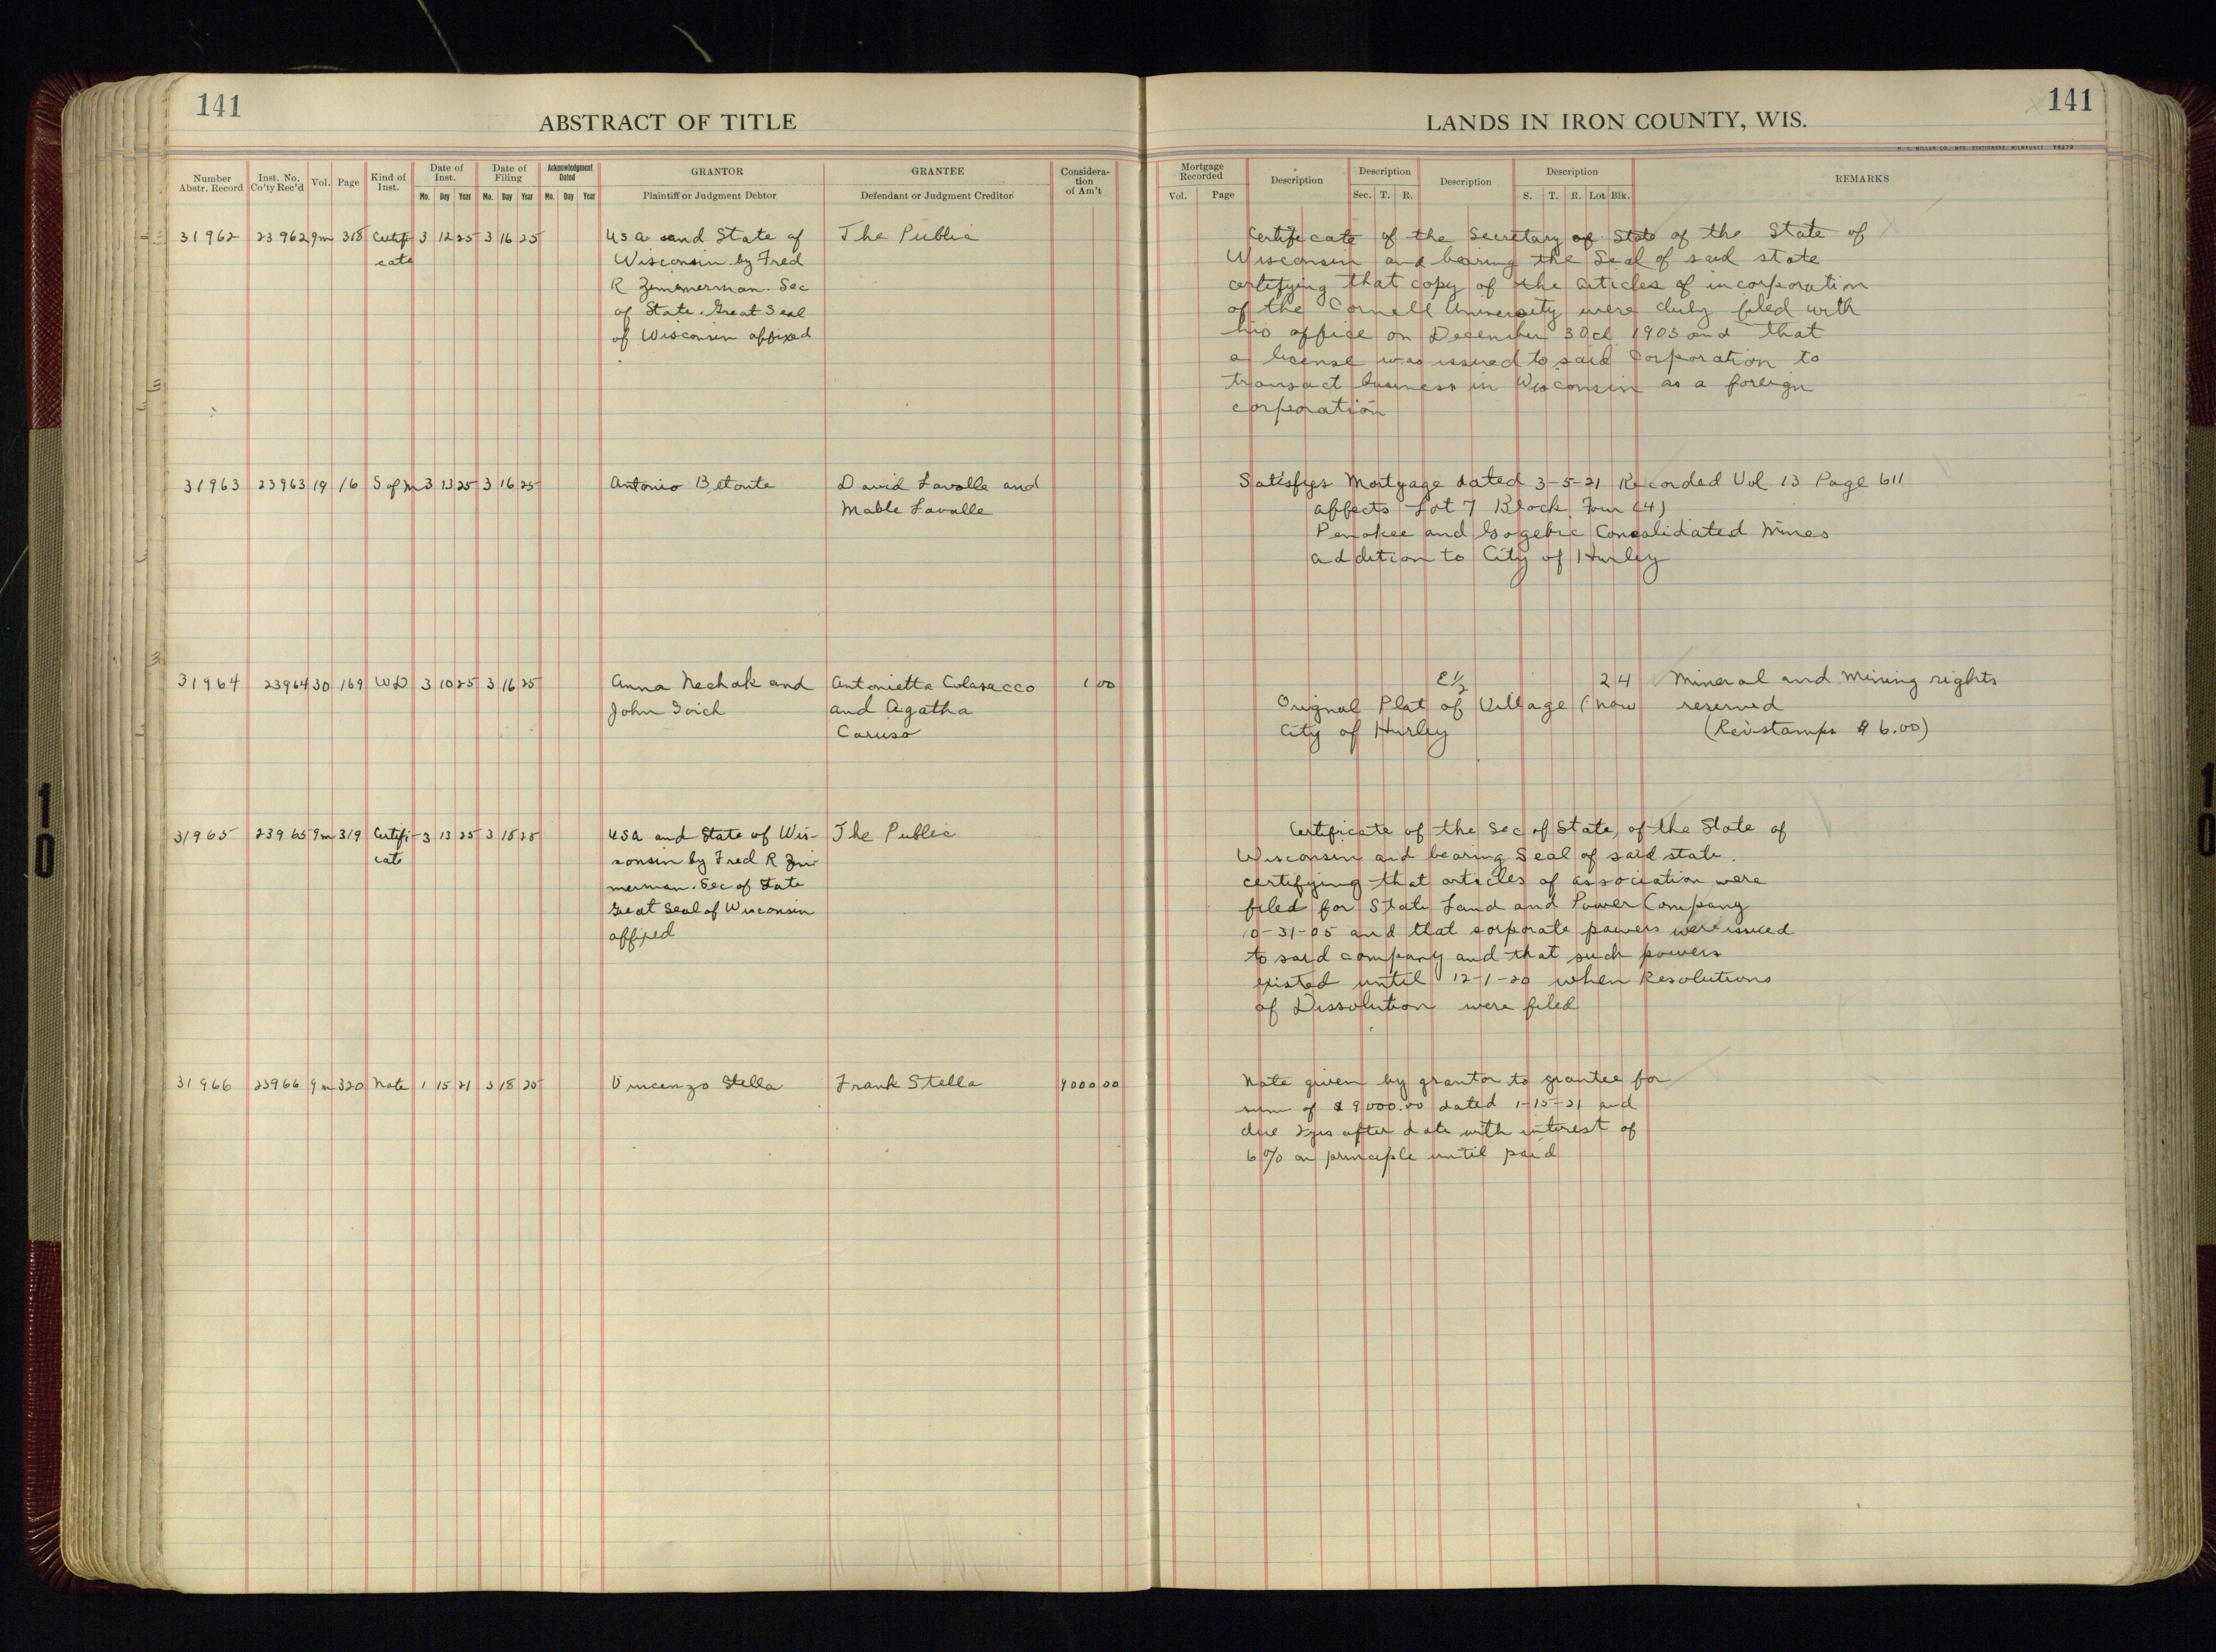 141
ABSTRACT OF TITLE
Number Abstr. Record
Inst. No. Co'ty Rec'd
Vol.
Page
Kind of Inst.
Date of Inst.
Mo. Day Year
Date of Filing
Mo. Day Year
Acknowledgment Dated
Mo. Day Year
GRANTOR
Plaintiff or Judgment Debtor
GRANTEE
Defendant or Judgment Creditor
Considera-
tion
of Am't
31962 23962 9m 318 Certifi- 3 12 25 3 16 25 USA and State of The Public
cate Wisconsin by Fred
R Zimmerman. Sec
of State. Great Seal
of Wisconsin affixed
31963 23963 19 16 S of M 3 13 25 3 16 25 Antonio Betonte David Lavalle and
Mable Lavalle
31964 23964 30 169 WD 3 10 25 3 16 25 Anna Nechak and Antonietta Colasacco 1 00
John and Agatha
Caruso
31965 23965 9m 319 Certifi- 3 13 25 3 18 25 USA and State of Wis- The Public
cate consin by Fred R Zim-
merman. Sec of State
Great Seal of Wisconsin
affixed
31966 23966 9m 320 Note 1 15 21 3 18 25 Vincenzo Stella Frank Stella 9000 00
141
LANDS IN IRON COUNTY, WIS.
H. C. MILLER CO., MFG. STATIONERS, MILWAUKEE
Mortgage Recorded
Vol. Page
Description
Description
Sec. T. R.
Description
Description
S. T. R. Lot Blk.
REMARKS
Certificate of the Secretary of State of the State of
Wisconsin and bearing the Seal of said state
certifying that copy of the articles of incorporation
of the Cornell University were duly filed with
his office on December 30d 1903 and that
a license was issued to said Corporation to
transact business in Wisconsin as a foreign
corporation
Satisfys Mortgage dated 3-5-21 Recorded Vol 13 Page 611
affects Lot 7 Block Four (4)
Penokee and Gogebic Consolidated Mines
addition to City of Hurley
E 1/2 2 4 Mineral and Mining rights
Orignal Plat of Village (now reserved
City of Hurley (Rev. stamps $6.00)
Certificate of the Sec of State, of the State of
Wisconsin and bearing Seal of said state.
certifying that articles of association were
filed for State Land and Power Company
10-31-05 and that corporate powers were issued
to said company and that such powers
existed until 12-1-20 when Resolutions
of Dissolution were filed
Note given by grantor to grantee for
sum of $9000.00 dated 1-15-21 and
due 2 yrs after date with interest of
6% on principle until paid
10
10